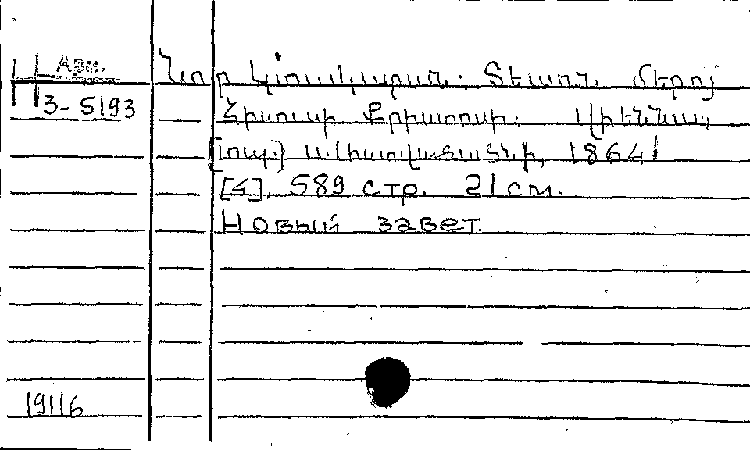 Арм.
Նոր Կտակարան. Տեառն մերոյ
Н 3-5193
Յիսուսի Քրիստոսի. Վիեննա,
[տպ.] 1864
[4], 589 стр. 21 см.
Новый завет.
19116